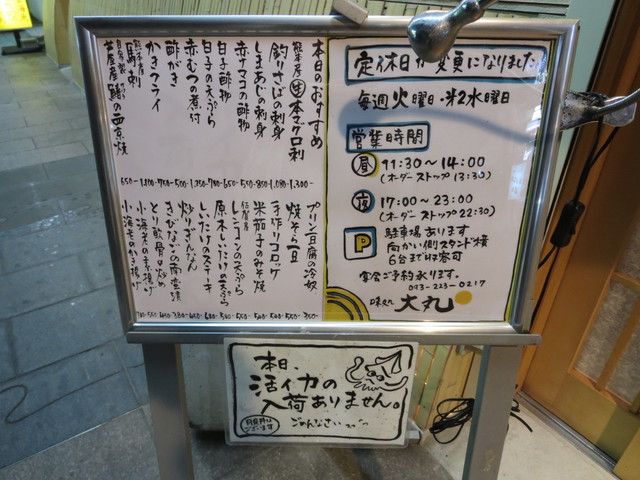 本日のおすすめ
熊本産 生本マグロ刺
釣りさばの刺身
しまあじの刺身
赤ナマコの酢物
白子酢物
白子の天ぷら
赤むつの煮付
酢がき
かきフライ
熊本産 馬刺
自家製 の西京焼
650- 1,100- 750- 500- 1,250- 780- 650- 550- 850- 1,080- 1,300-
プリン豆腐の冷奴
焼そら豆
手作りコロッケ
米茄子のみそ焼
レンコンの天ぷら
原木しいたけの天ぷら
しいたけのステーキ
炒りぎんなん
きびなごの南蛮漬
とり軟骨の炒め
小海老の素揚げ
小海老のかき揚げ
定休日が変更になりました
毎週火曜日・第2水曜日
営業時間
昼 11:30～14:00
(オーダーストップ 13:30)
夜 17:00～23:00
(オーダーストップ 22:30)
P 駐車場あります
向かい側スタンド横
6台まで駐車可
宴会ご予約承ります。
093-223-0217
味処 大丸
本日、
活イカの
入荷ありません。
ございます
ごめんなさい